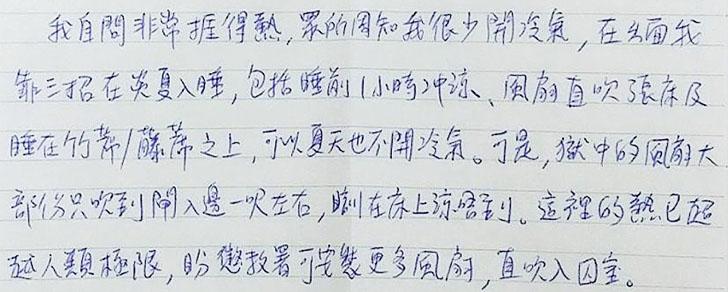 我自問非常捱得熱,眾所周知我很少開冷氣,在出面我
靠三招在炎夏入睡,包括睡前1小時沖涼、風扇直吹張床及
睡在竹蓆/藤蓆之上,可以夏天也不開冷氣。可是,獄中的風扇大
部份只吹到閘入邊一呎左右,瞓在床上涼唔到。這裡的熱已超
越人類極限,盼懲教署可安裝更多風扇,直吹入囚室。